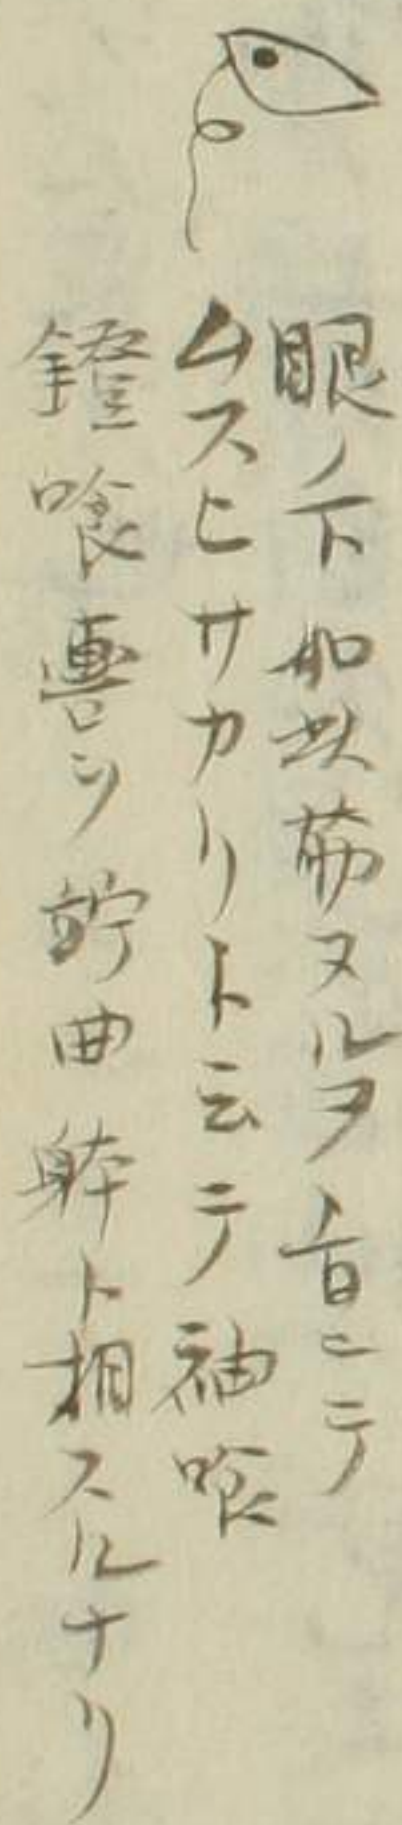 眼ノ下如此筋ヌルヲ百ニテ
ムスヒサカリト云テ袖喰
鐙喰轡ツ貯曲躰ト相スルナリ